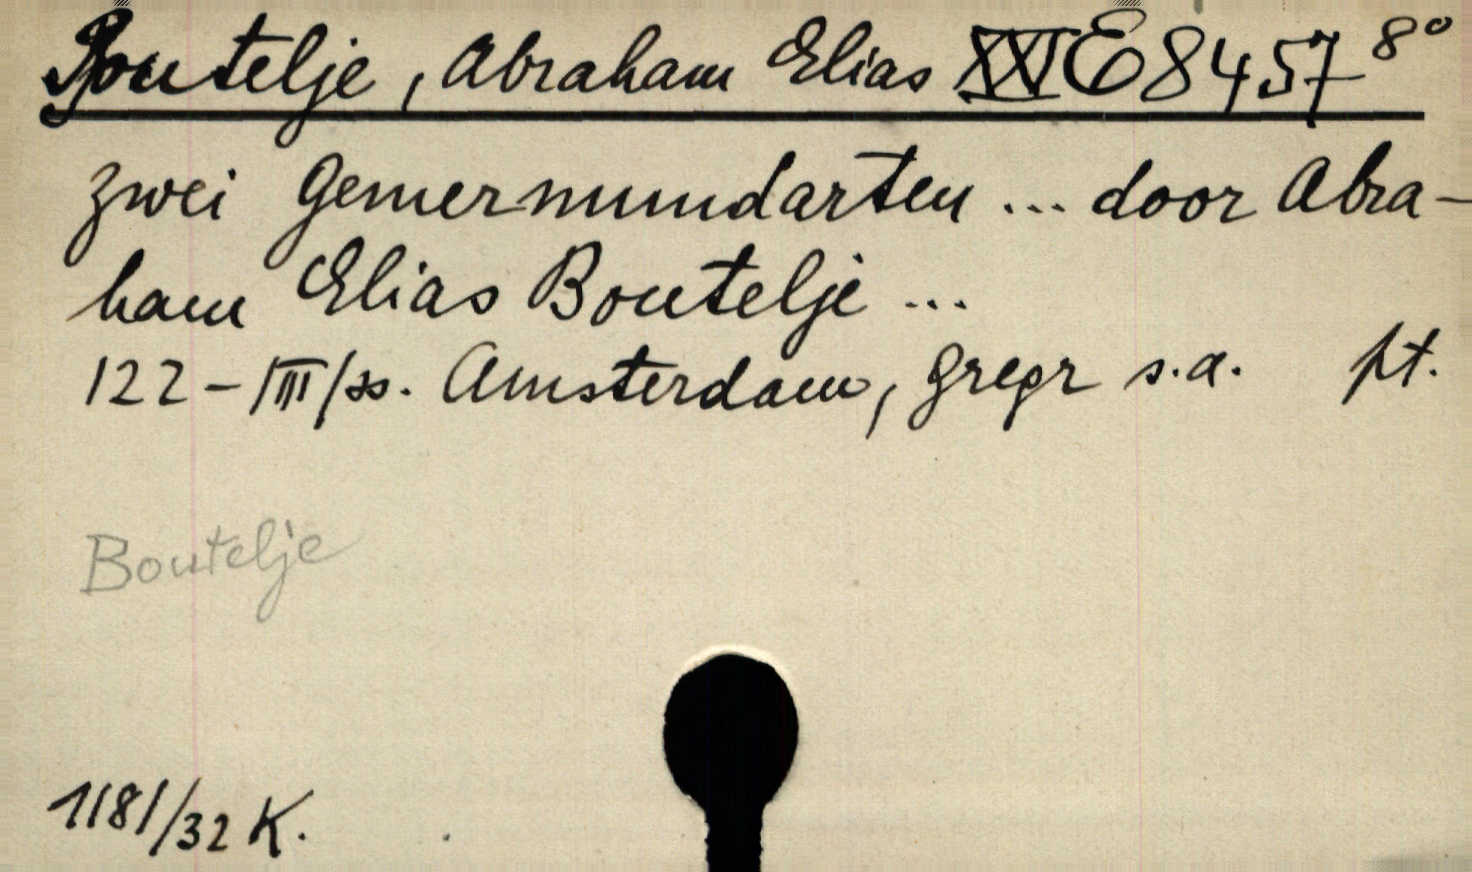 Boutelje, Abraham Elias XXI E 8457 8°
zwei Gemermundarten ... door Abra-
ham Elias Boutelje ...
122-III/ss. Amsterdam, Gregr s.a. pt.
Boutelje
1181/32 K.